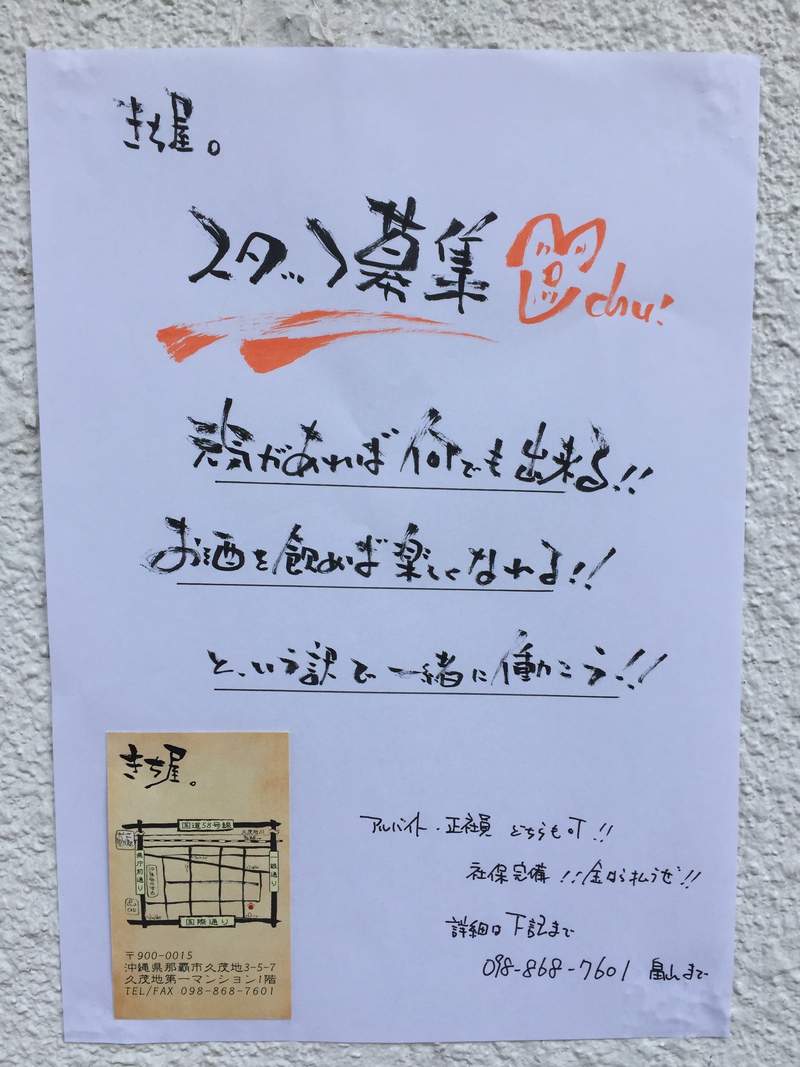 きち屋。
スタッフ募集 chu!
元気があれば何でも出来る!!
お酒を飲めば楽しくなれる!!
と、いう訳で一緒に働こう!!
アルバイト・正社員 どちらも可!!
社保完備!!金なら払うぜ!!
詳細は下記まで
098-868-7601 畠山まで
きち屋。
国道58号線
久茂地川
県庁前通り
一銀通り
国際通り
〒900-0015
沖縄県那覇市久茂地3-5-7
久茂地第一マンション1階
TEL/FAX 098-868-7601